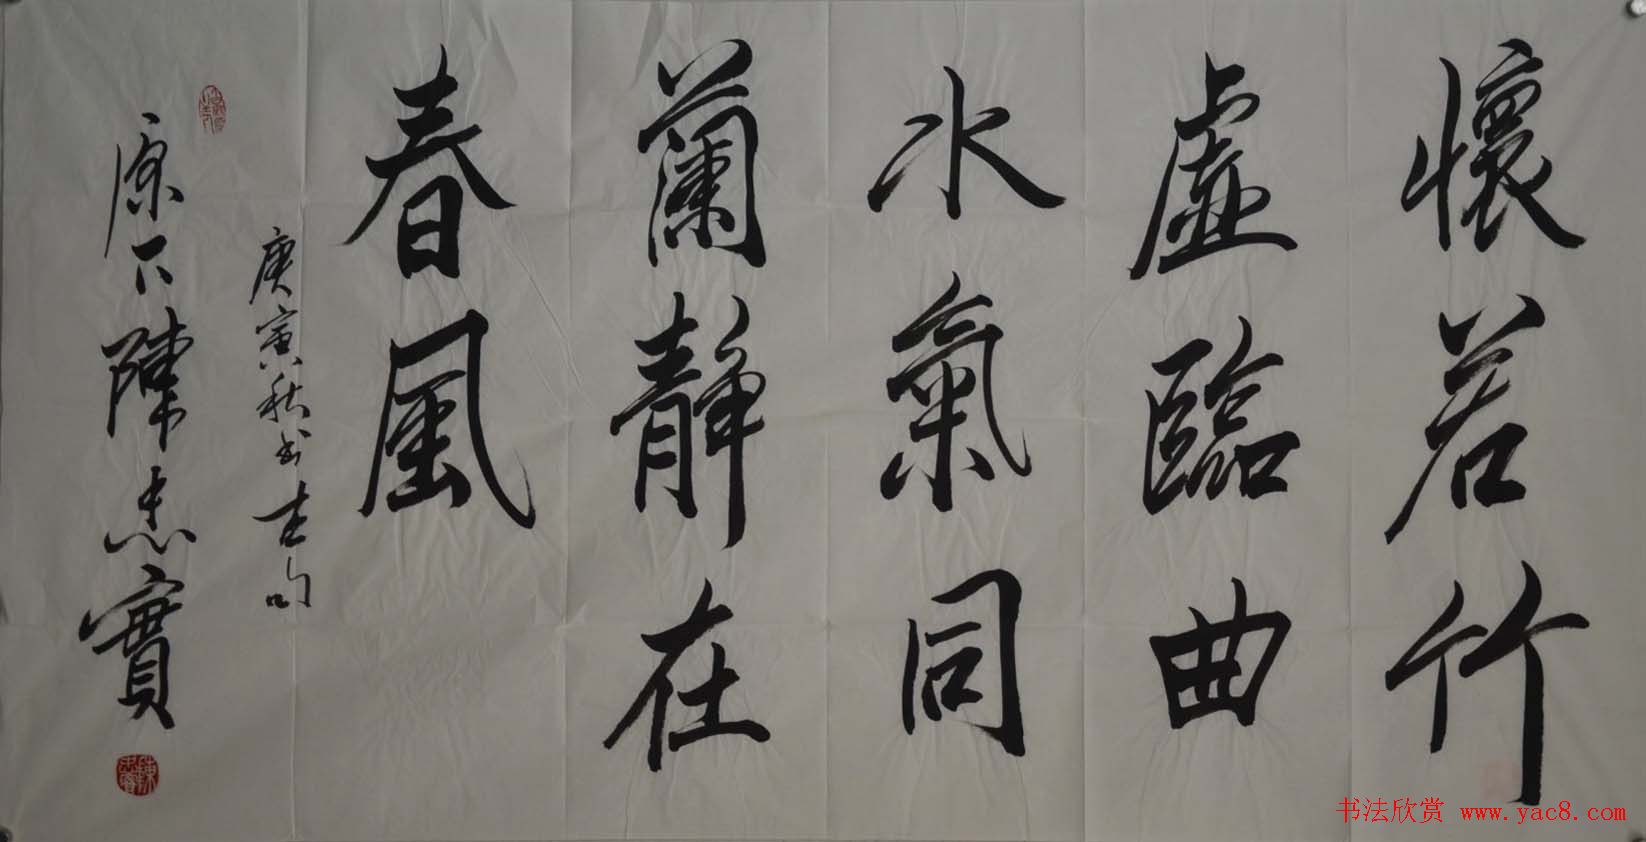 懷若竹
虛臨曲
水氣同
蘭靜在
春風
庚寅秋書古句
陳忠實
书法欣赏 www.yac8.com